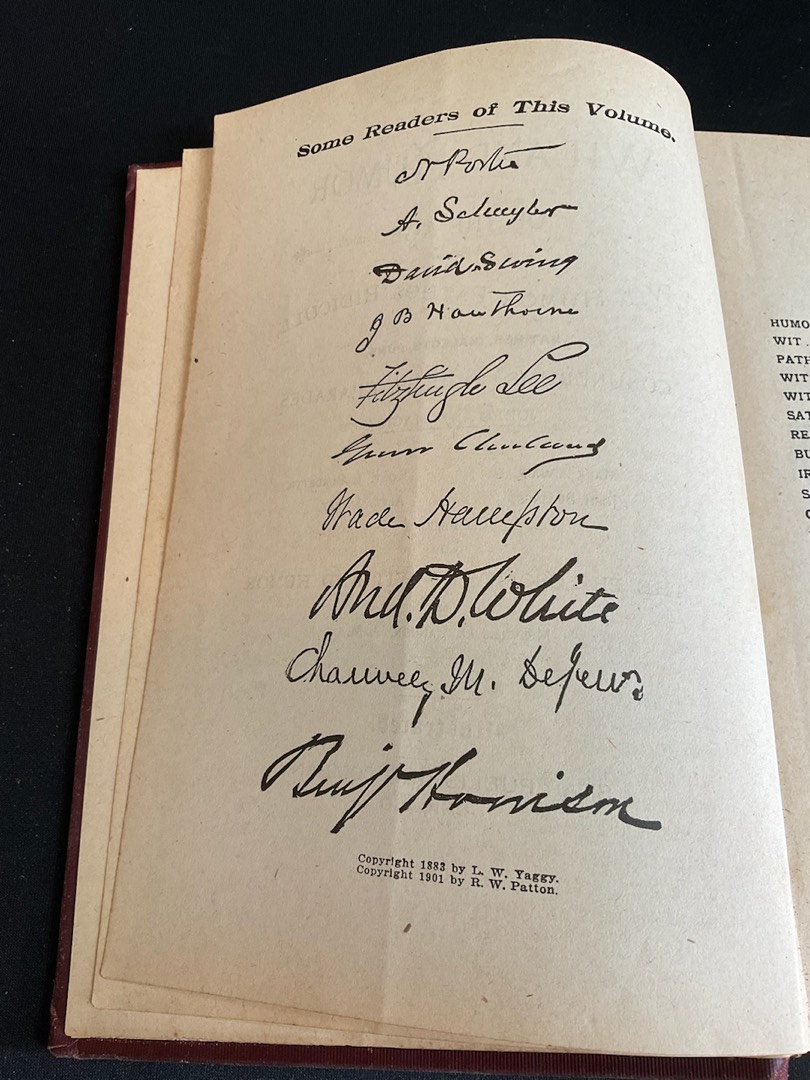 Some Readers of This Volume.
N Porter
A. Schuyler
David Swing
J B Hawthorne
Fitzhugh Lee
Grover Cleveland
Wade Hampton
And. D. White
Chauncey M. Depew.
Benj Harrison
Copyright 1883 by L. W. Yaggy.
Copyright 1901 by R. W. Patton.
HUMO
WIT .
PATH
WIT
WIT
SAT
RE
BU
IR
S